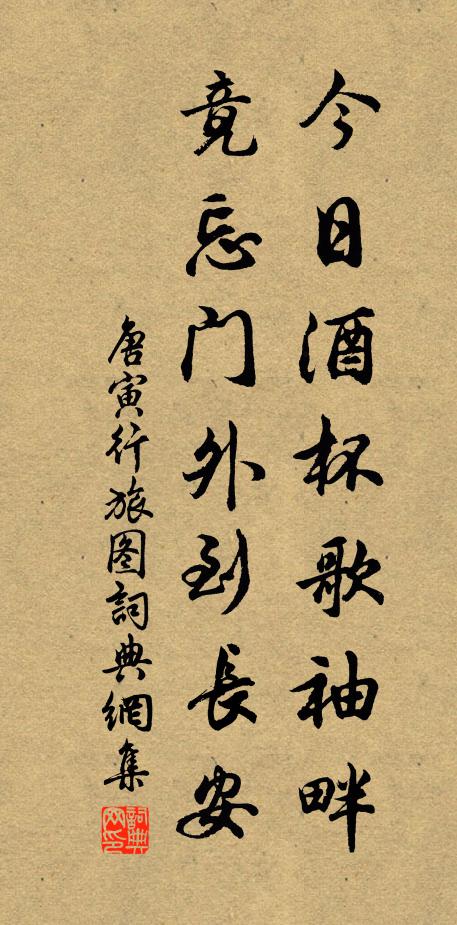 今日酒杯歌袖畔
竟忘门外到長安
唐寅行旅图詞典網集
詞典网印